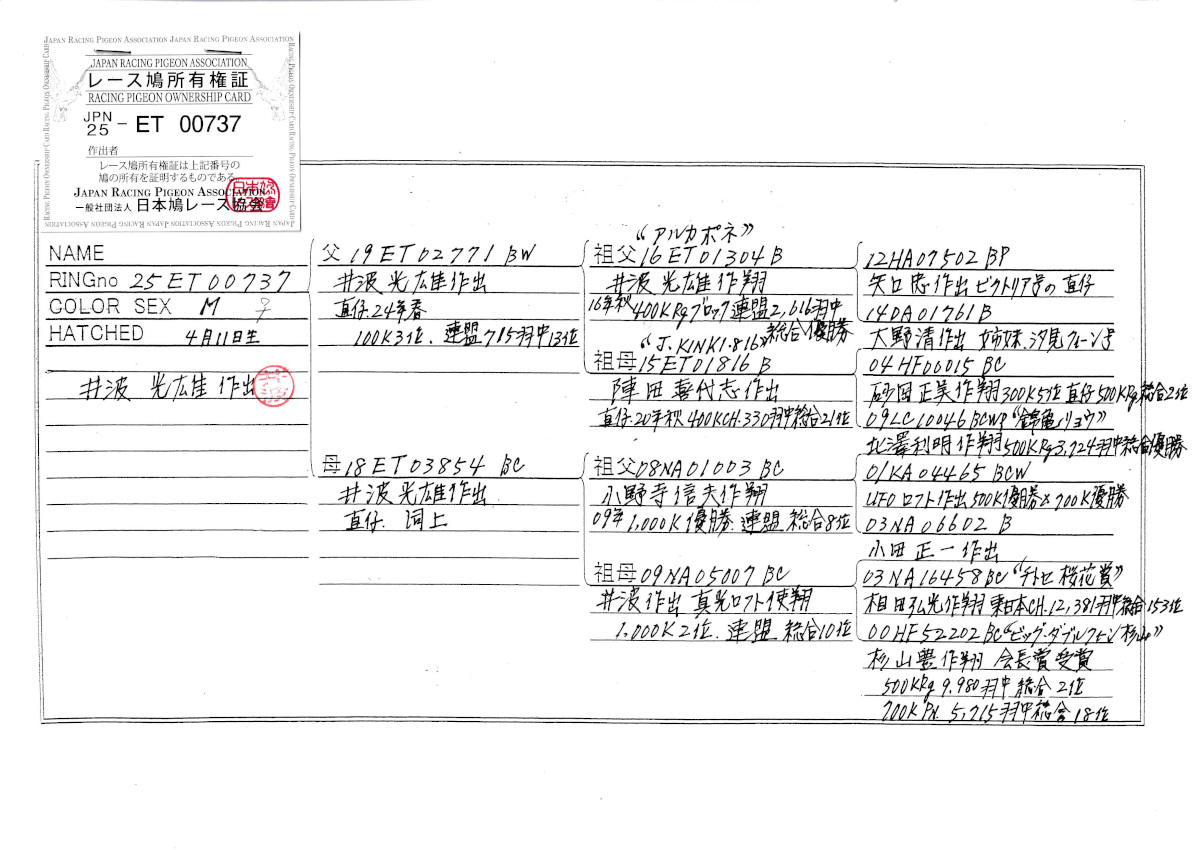 JAPAN RACING PIGEON ASSOCIATION JAPAN RACING PIGEON ASSOCIATION
JAPAN RACING PIGEON ASSOCIATION
レース鳩所有権証
RACING PIGEON OWNERSHIP CARD
JPN 25 - ET 00737
作出者
レース鳩所有権証は上記番号の
鳩の所有を証明するものである。
JAPAN RACING PIGEON ASSOCIATION
一般社団法人 日本鳩レース協会
NAME
RINGno 25ET00737
COLOR SEX M ♀
HATCHED 4月11日生
井波 光広雄 作出
父 19ET02771 BW
井波 光雄作出
直仔.24年春
100K3位. 連盟715羽中13位
母 18ET03854 BC
井波 光雄作出
直仔. 同上
"アルカポネ"
祖父 16ET01304 B
井波 光雄作翔
16年秋400KRgブロック連盟2,616羽中
総合優勝
"J.KINKI.816"
祖母 15ET01816 B
陣田喜代志作出
直仔.20年秋 400KCH.330羽中総合21位
祖父 08NA01003 BC
小野寺信夫作翔
09年 1,000K優勝. 連盟 総合8位
祖母 09NA05007 BC
井波作出 真光ロフト使翔
1,000K2位. 連盟 総合10位
12HA07502 BP
矢口忠作出 ビクトリア号の直仔
14DA01761 B
大野清作出 姉妹.汐見クィーン号
04HF06015 BC
砂田正美作翔300K5位直仔500KRg総合2位
09LC10046 BCWP "錦亀リョウ"
北澤利明作翔500KRg3,724羽中総合優勝
01KA04465 BCW
UFOロフト作出500K優勝×700K優勝
03NA06602 B
小田正一作出
03NA16458BC "チトセ桜花賞"
相田弘光作翔 東日本CH.12,381羽中総合153位
00HF52202BC "ビッグ・ダブルクィーン杉山"
杉山豊作翔 会長賞受賞
500KRg 9,980羽中総合2位
700K 5,715羽中総合18位